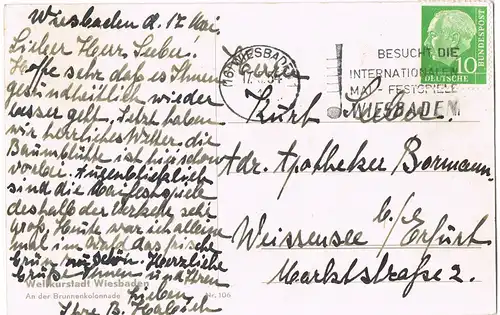 Wiesbaden d. 17. Mai
Lieber Herr Seeber.
Hoffe sehr daß es Ihnen
gesundheitlich wieder
besser geht. Jetzt haben
wir herrliches Wetter, die
Baumblüte ist hier schon
vorbei. Augenblicklich
sind die Maifestspiele
deshalb der Verkehr sehr
groß. Heute war ich allein
mal im Wald das frische
Grün schön. Herzliche
Grüße Ihnen und Ihren
Lieben
Ihre B.
Weltkurstadt Wiesbaden
An der Brunnenkolonnade Nr. 106
(16) WIESBADEN
BESUCHT DIE
INTERNATIONALEN
MAI-FESTSPIELE
WIESBADEN
10
DEUTSCHE
BUNDESPOST
Herrn
Kurt Seeber.
Adr. Apotheker Bormann
Weissensee b/Erfurt
Marktstraße 2.